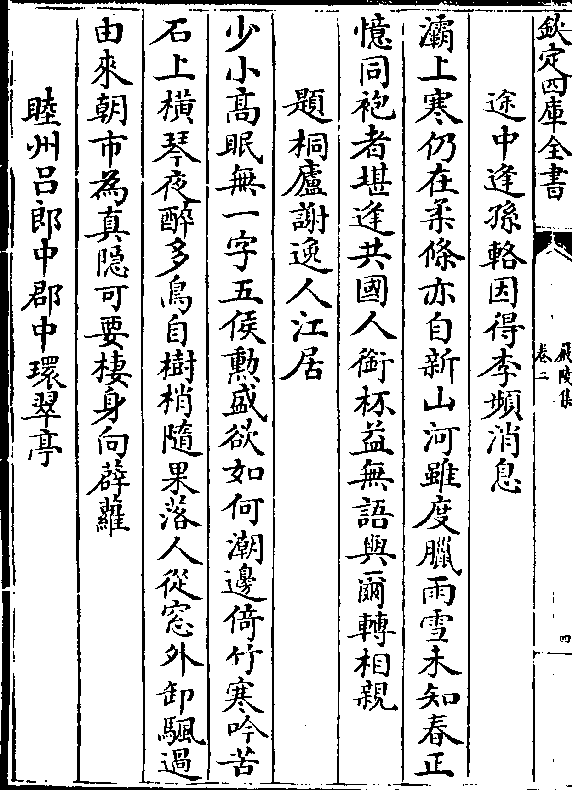 欽定四庫全書
嚴陵集
卷二
四
途中逢孫輅因得李頻消息
灞上寒仍在柔條亦自新山河雖度臘雨雪未知春正
憶同袍者堪逢共國人銜杯益無語與爾轉相親
題桐廬謝逸人江居
少小髙眠無一字五侯勲盛欲如何潮邊倚竹寒吟苦
石上横琴夜醉多鳥自樹梢隨果落人從窓外卸颿過
由來朝市為真隠可要棲身向薜蘿
睦州吕郎中郡中環翠亭